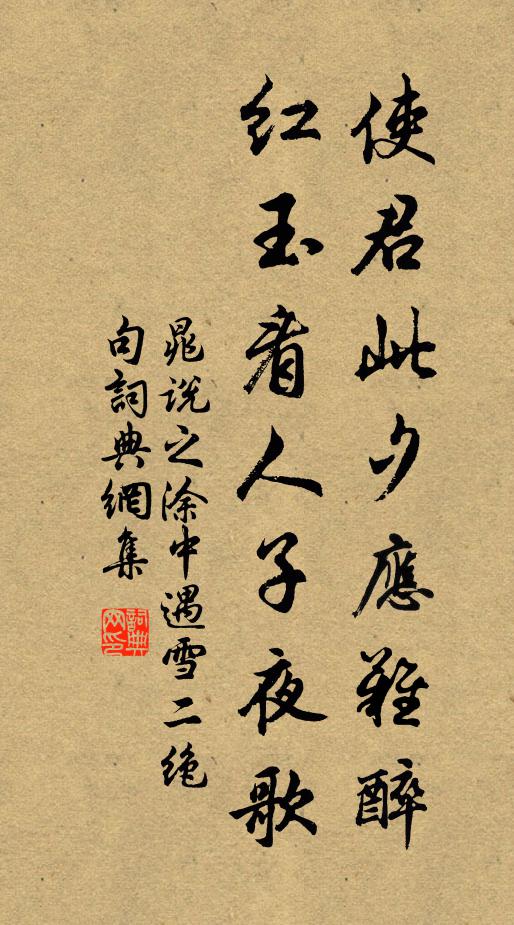 使君此夕應難醉
紅玉看人子夜歌
晁說之涂中遇雪二絕
句詞典網集
詞典
网印